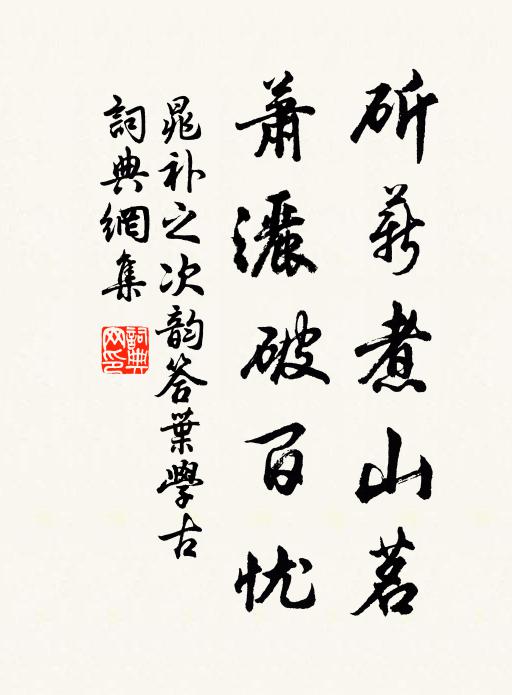 斫薪煮山茗
萧灑破百忧
晁补之次韵答葉學古
詞典網集
詞典網印